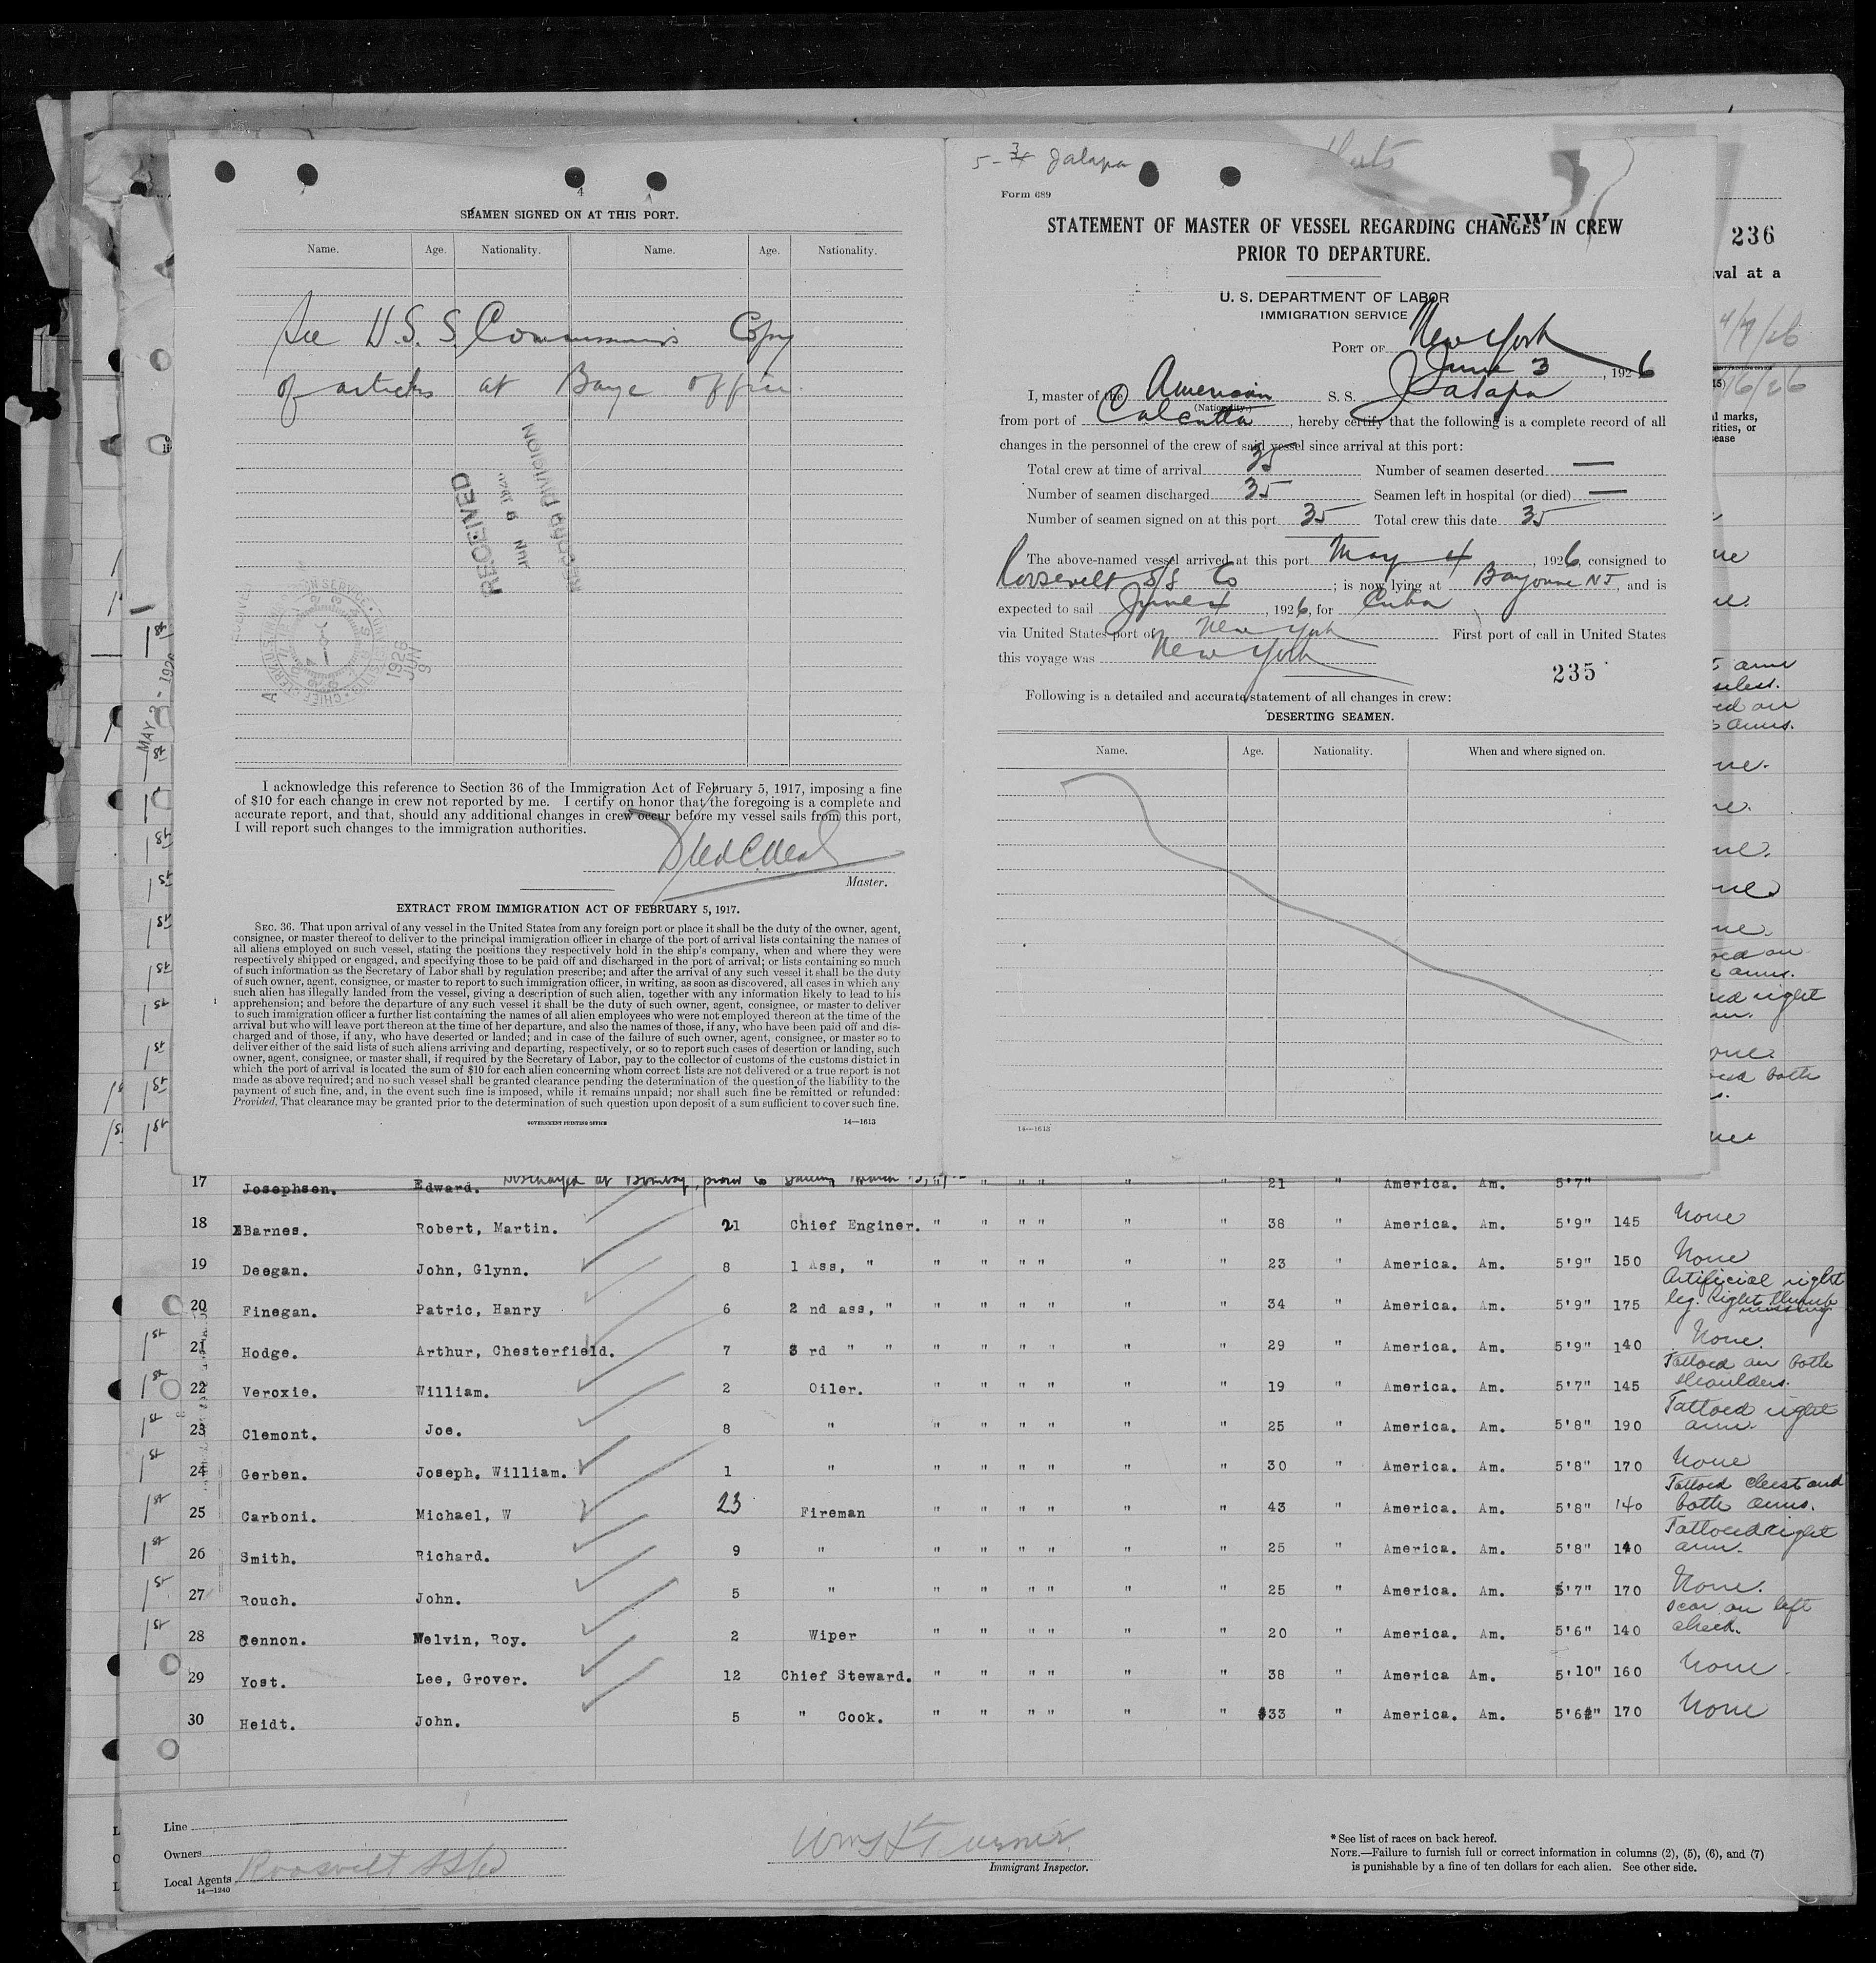 4
SEAMEN SIGNED ON AT THIS PORT.
Name. Age. Nationality. Name. Age. Nationality.
See U.S.S. Copy
of articles at Barge office.
RECEIVED
JUN 9 1926
RECORD DIVISION
1926 JUN 9
I acknowledge this reference to Section 36 of the Immigration Act of February 5, 1917, imposing a fine
of $10 for each change in crew not reported by me. I certify on honor that the foregoing is a complete and
accurate report, and that, should any additional changes in crew occur before my vessel sails from this port,
I will report such changes to the immigration authorities.
Master.
EXTRACT FROM IMMIGRATION ACT OF FEBRUARY 5, 1917.
SEC. 36. That upon arrival of any vessel in the United States from any foreign port or place it shall be the duty of the owner, agent,
consignee, or master thereof to deliver to the principal immigration officer in charge of the port of arrival lists containing the names of
all aliens employed on such vessel, stating the positions they respectively hold in the ship's company, when and where they were
respectively shipped or engaged, and specifying those to be paid off and discharged in the port of arrival; or lists containing so much
of such information as the Secretary of Labor shall by regulation prescribe; and after the arrival of any such vessel it shall be the duty
of such owner, agent, consignee, or master to report to such immigration officer, in writing, as soon as discovered, all cases in which any
such alien has illegally landed from the vessel, giving a description of such alien, together with any information likely to lead to his
apprehension; and before the departure of any such vessel it shall be the duty of such owner, agent, consignee, or master to deliver
to such immigration officer a further list containing the names of all alien employees who were not employed thereon at the time of the
arrival but who will leave port thereon at the time of her departure, and also the names of those, if any, who have been paid off and dis-
charged and of those, if any, who have deserted or landed; and in case of the failure of such owner, agent, consignee, or master so to
deliver either of the said lists of such aliens arriving and departing, respectively, or so to report such cases of desertion or landing, such
owner, agent, consignee, or master shall, if required by the Secretary of Labor, pay to the collector of customs of the customs district in
which the port of arrival is located the sum of $10 for each alien concerning whom correct lists are not delivered or a true report is not
made as above required; and no such vessel shall be granted clearance pending the determination of the question of the liability to the
payment of such fine, and, in the event such fine is imposed, while it remains unpaid; nor shall such fine be remitted or refunded:
Provided, That clearance may be granted prior to the determination of such question upon deposit of a sum sufficient to cover such fine.
GOVERNMENT PRINTING OFFICE 14—1613
5-3 Jalapa
Form 689
STATEMENT OF MASTER OF VESSEL REGARDING CHANGES IN CREW
PRIOR TO DEPARTURE.
U. S. DEPARTMENT OF LABOR
IMMIGRATION SERVICE
PORT OF New York
June 3, 1926
I, master of the American S. S. Jalapa
(Nationality.)
from port of Calcutta, hereby certify that the following is a complete record of all
changes in the personnel of the crew of said vessel since arrival at this port:
Total crew at time of arrival 35 Number of seamen deserted —
Number of seamen discharged 35 Seamen left in hospital (or died) —
Number of seamen signed on at this port 35 Total crew this date 35
The above-named vessel arrived at this port May 4, 1926, consigned to
Roosevelt S/S Co; is now lying at Bayonne NJ, and is
expected to sail June 4, 1926, for Cuba
via United States port of New York First port of call in United States
this voyage was New York
235
Following is a detailed and accurate statement of all changes in crew:
DESERTING SEAMEN.
Name. Age. Nationality. When and where signed on.
14—1613
236
val at a
4/7/26
16/26
l marks,
rities, or
sease
17 Josephsen. Edward. Discharged at Bombay, prior to sailing March " " " " " 21 " America. Am. 5'7"
18 Barnes. Robert, Martin. 21 Chief Enginer. " " " " " " 38 " America. Am. 5'9" 145 None
19 Deegan. John, Glynn. 8 1 Ass, " " " " " " " 23 " America. Am. 5'9" 150 None
20 Finegan. Patric, Hanry 6 2 nd ass, " " " " " " " 34 " America. Am. 5'9" 175 Artificial right leg. Right thumb missing
1st 21 Hodge. Arthur, Chesterfield. 7 3 rd " " " " " " " " 29 " America. Am. 5'9" 140 None.
1st 22 Veroxie. William. 2 Oiler. " " " " " " 19 " America. Am. 5'7" 145 Tattoed on both shoulders.
1st 23 Clemont. Joe. 8 " " " " " " " 25 " America. Am. 5'8" 190 Tattoed right arm.
1st 24 Gerben. Joseph, William. 1 " " " " " " " 30 " America. Am. 5'8" 170 None
1st 25 Carboni. Michael, W 23 Fireman " " " " " " 43 " America. Am. 5'8" 140 Tattoed chest and both arms.
1st 26 Smith. Richard. 9 " " " " " " " 25 " America. Am. 5'8" 140 Tattoed right arm.
1st 27 Rouch. John. 5 " " " " " " " 25 " America. Am. 5'7" 170 None.
1st 28 Cennon. Melvin, Roy. 2 Wiper " " " " " " 20 " America. Am. 5'6" 140 scar on left cheek.
29 Yost. Lee, Grover. 12 Chief Steward. " " " " " " 38 " America Am. 5'10" 160 None.
30 Heidt. John. 5 " Cook. " " " " " " 33 " America. Am. 5'6" 170 None
Line
Owners
Local Agents Roosvilt SSCo
14—1240
Wm H Turner
Immigrant Inspector.
* See list of races on back hereof.
NOTE.—Failure to furnish full or correct information in columns (2), (5), (6), and (7)
is punishable by a fine of ten dollars for each alien. See other side.